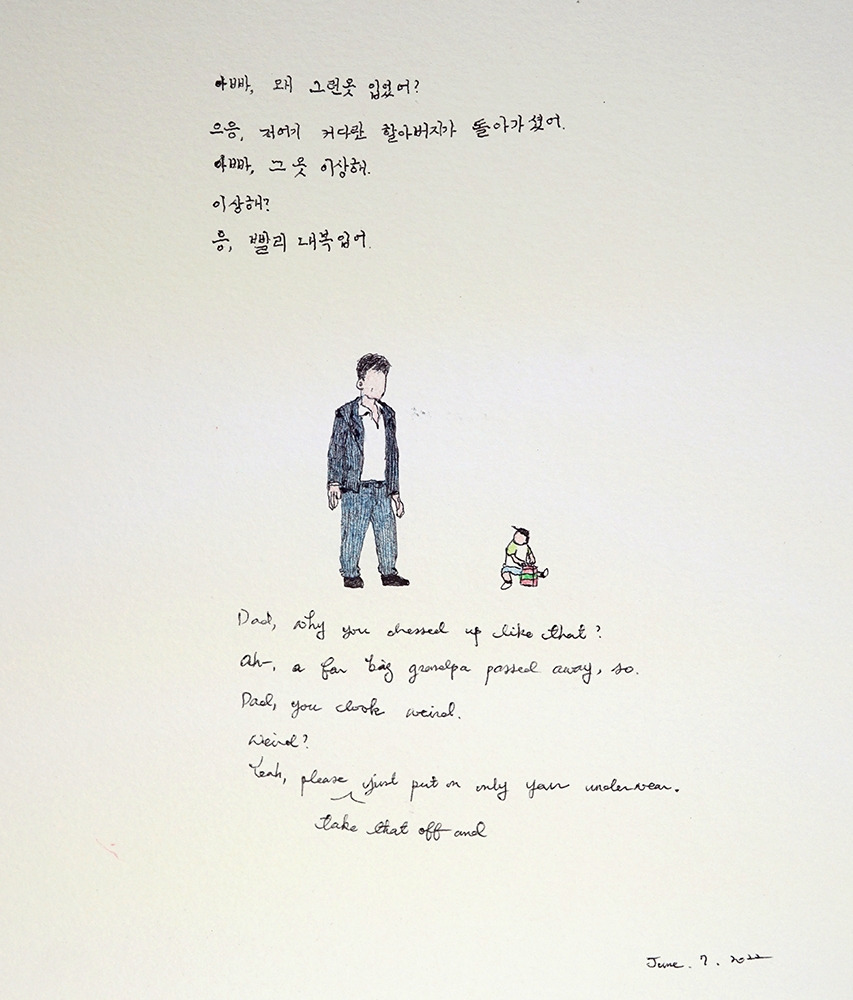 아빠, 왜 그런옷 입었어?
으응, 저어기 커다란 할아버지가 돌아가셨어.
아빠, 그 옷 이상해.
이상해?
응, 빨리 내복입어.
Dad, why you dressed up like that?
Ah-, a far big grandpa passed away, so.
Dad, you look weird.
Weird?
Yeah, please just put on only your underwear.
take that off and
June. 7. 2022